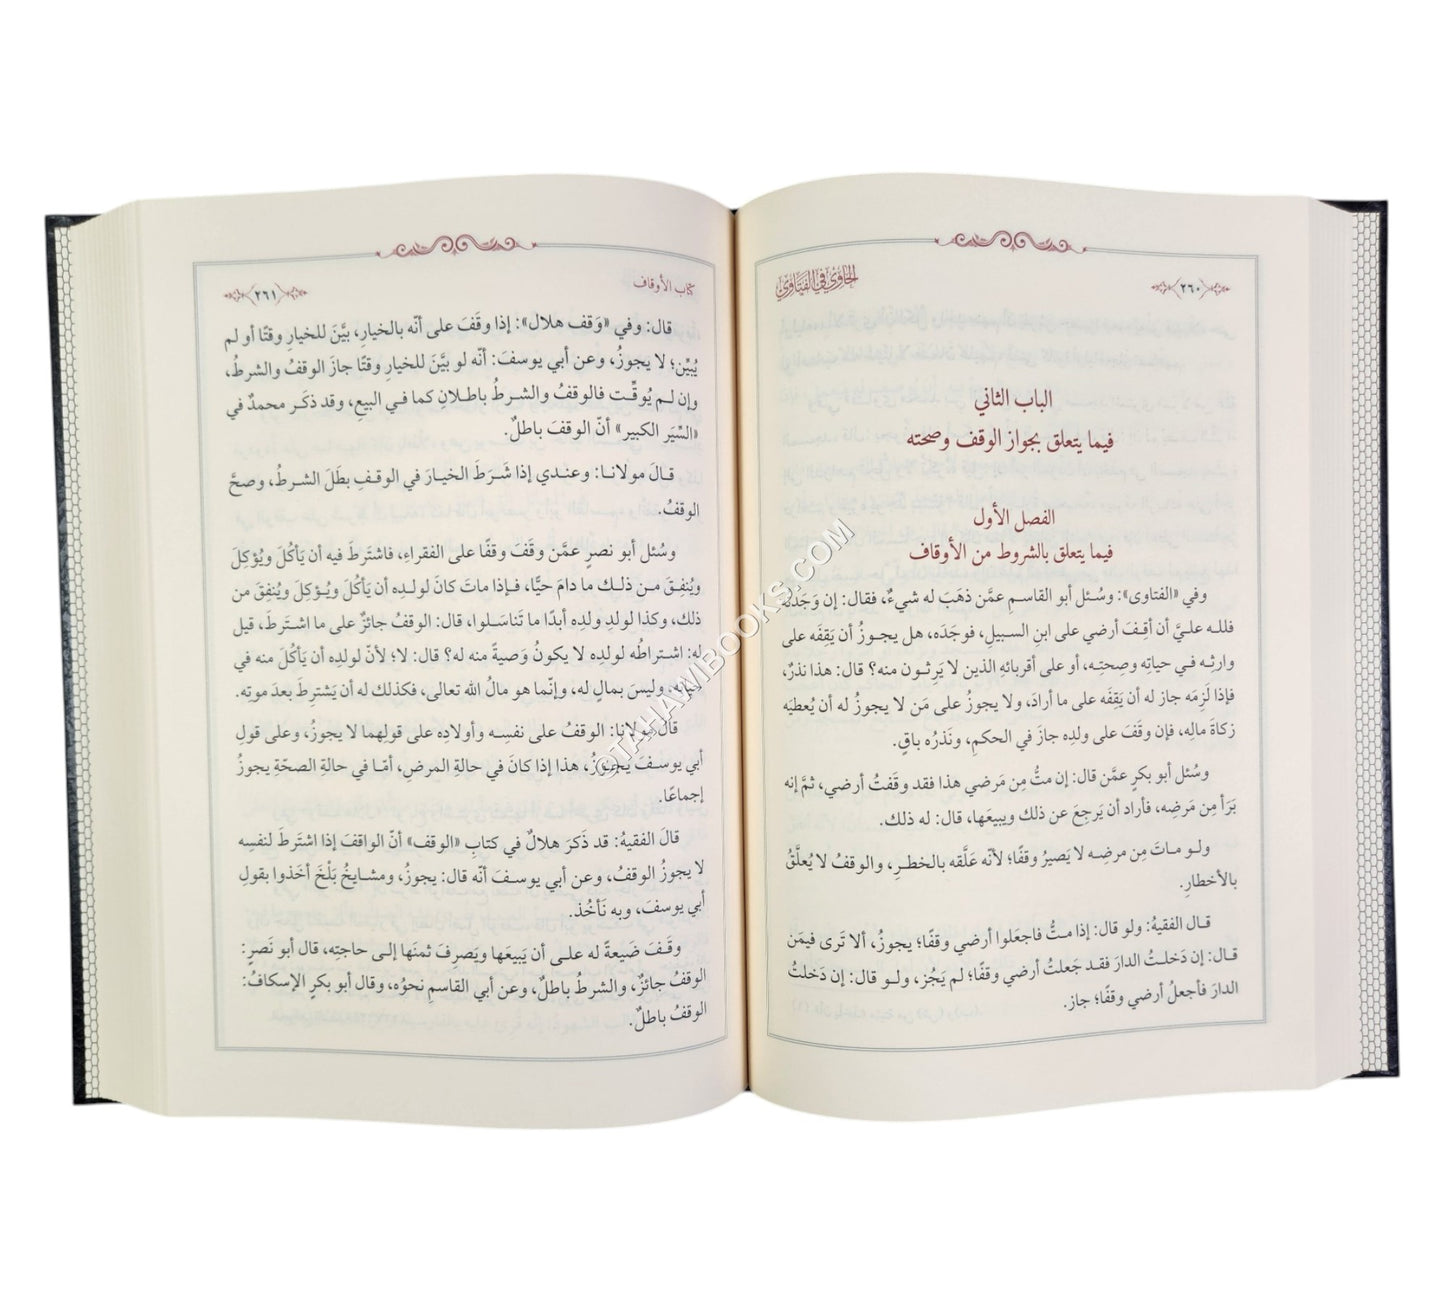 الحاوي في الفتاوى
٢٦٠
الباب الثاني
فيما يتعلق بجواز الوقف وصحته
الفصل الأول
فيما يتعلق بالشروط من الأوقاف
وفي «الفتاوى»: وسُئل أبو القاسمِ عمَّن ذهَبَ له شيءٌ، فقال: إن وَجَدتُه
فللـه علـيَّ أن أقِـفَ أرضي على ابنِ السـبيلِ، فوجَدَه، هل يجـوزُ أن يَقِفَه على
وارثِـه فـي حياتِه وصِحتِـه، أو على أقربائِه الذين لا يَرِثـون منه؟ قال: هذا نذرٌ،
فإذا لَزِمَه جاز له أن يَقِفَه على ما أرادَ، ولا يجوزُ على مَن لا يجوزُ له أن يُعطيَه
زكاةَ مالِه، فإن وقَفَ على ولدِه جازَ في الحكمِ، ونَذرُه باقٍ.
وسُئل أبو بكرٍ عمَّن قال: إن متُّ مِن مَرَضي هذا فقد وقَفتُ أرضي، ثمَّ إنه
بَرَأ مِن مَرَضِه، فأراد أن يَرجِعَ عن ذلك ويبيعَها، قال: له ذلك.
ولـو مـاتَ مِن مرضِـه لا يَصيرُ وقفًا؛ لأنّه عَلَّقه بالخطـرِ، والوقفُ لا يُعلَّقُ
بالأخطارِ.
قـال الفقيهُ: ولو قال: إذا متُّ فاجعَلوا أرضي وقفًا؛ يجوزُ، ألا تَرى فيمَن
قـال: إن دَخلـتُ الدارَ فقـد جَعلتُ أرضي وقفًا؛ لم يَجُز، ولـو قال: إن دَخلتُ
الدارَ فأجعلُ أرضي وقفًا؛ جاز.
كتاب الأوقاف
٢٦١
قال: وفي «وَقف هلال»: إذا وقَفَ على أنّه بالخيارِ، بيَّنَ للخيارِ وقتًا أو لم
يُبيِّن؛ لا يجوزُ، وعن أبي يوسفَ: أنّه لو بيَّنَ للخيارِ وقتًا جازَ الوقفُ والشرطُ،
وإن لـم يُوقِّـت فالوقـفُ والشـرطُ باطـلانِ كما فـي البيعِ، وقد ذكَـر محمدٌ في
«السِّيَر الكبير» أنّ الوقفَ باطلٌ.
قـالَ مولانـا: وعنـدي إذا شَـرَطَ الخيـارَ في الوقـفِ بطَلَ الشـرطُ، وصحَّ
الوقفُ.
وسُـئل أبو نصرٍ عمَّن وقَفَ وقفًا على الفقراءِ، فاشتَرطَ فيه أن يَأكُلَ ويُؤكِلَ
ويُنفِـقَ مـن ذلـك ما دامَ حيًّا، فـإذا ماتَ كانَ لولـدِه أن يَأكُلَ ويُـؤكِلَ ويُنفِقَ من
ذلك، وكذا لولدِ ولدِه أبدًا ما تَناسَـلوا، قال: الوقفُ جائزٌ على ما اشـترَطَ، قيل
له: اشـتراطُه لولدِه لا يكونُ وَصيةً منه له؟ قال: لا؛ لأنّ لولدِه أن يَأكُلَ منه في
حياتِه، وليسَ بمالٍ له، وإنّما هو مالُ الله تعالى، فكذلك له أن يَشترِطَ بعدَ موتِه.
قالَ مولانا: الوقفُ على نفسِـه وأولادِه على قولِهما لا يجوزُ، وعلى قولِ
أبي يوسـفَ يَجـوزُ، هذا إذا كانَ في حالةِ المرضِ، أمّـا في حالةِ الصحّةِ يجوزُ
إجماعًا.
قالَ الفقيهُ: قد ذَكَرَ هلالٌ في كتابِ «الوقف» أنّ الواقفَ إذا اشترطَ لنفسِه
لا يجوزُ الوقفُ، وعن أبي يوسـفَ أنّه قال: يجوزُ، ومشايخُ بَلْخَ أخَذوا بقولِ
أبي يوسفَ، وبه نَأخُذ.
وقَـفَ ضَيعةً له على أن يَبيعَها ويَصرِفَ ثمنَها إلـى حاجتِه، قال أبو نَصرٍ:
الوقفُ جائزٌ، والشرطُ باطلٌ، وعن أبي القاسمِ نحوُه، وقال أبو بكرٍ الإسكاف:
الوقفُ باطلٌ.
OTAHAMBOOKS.COM